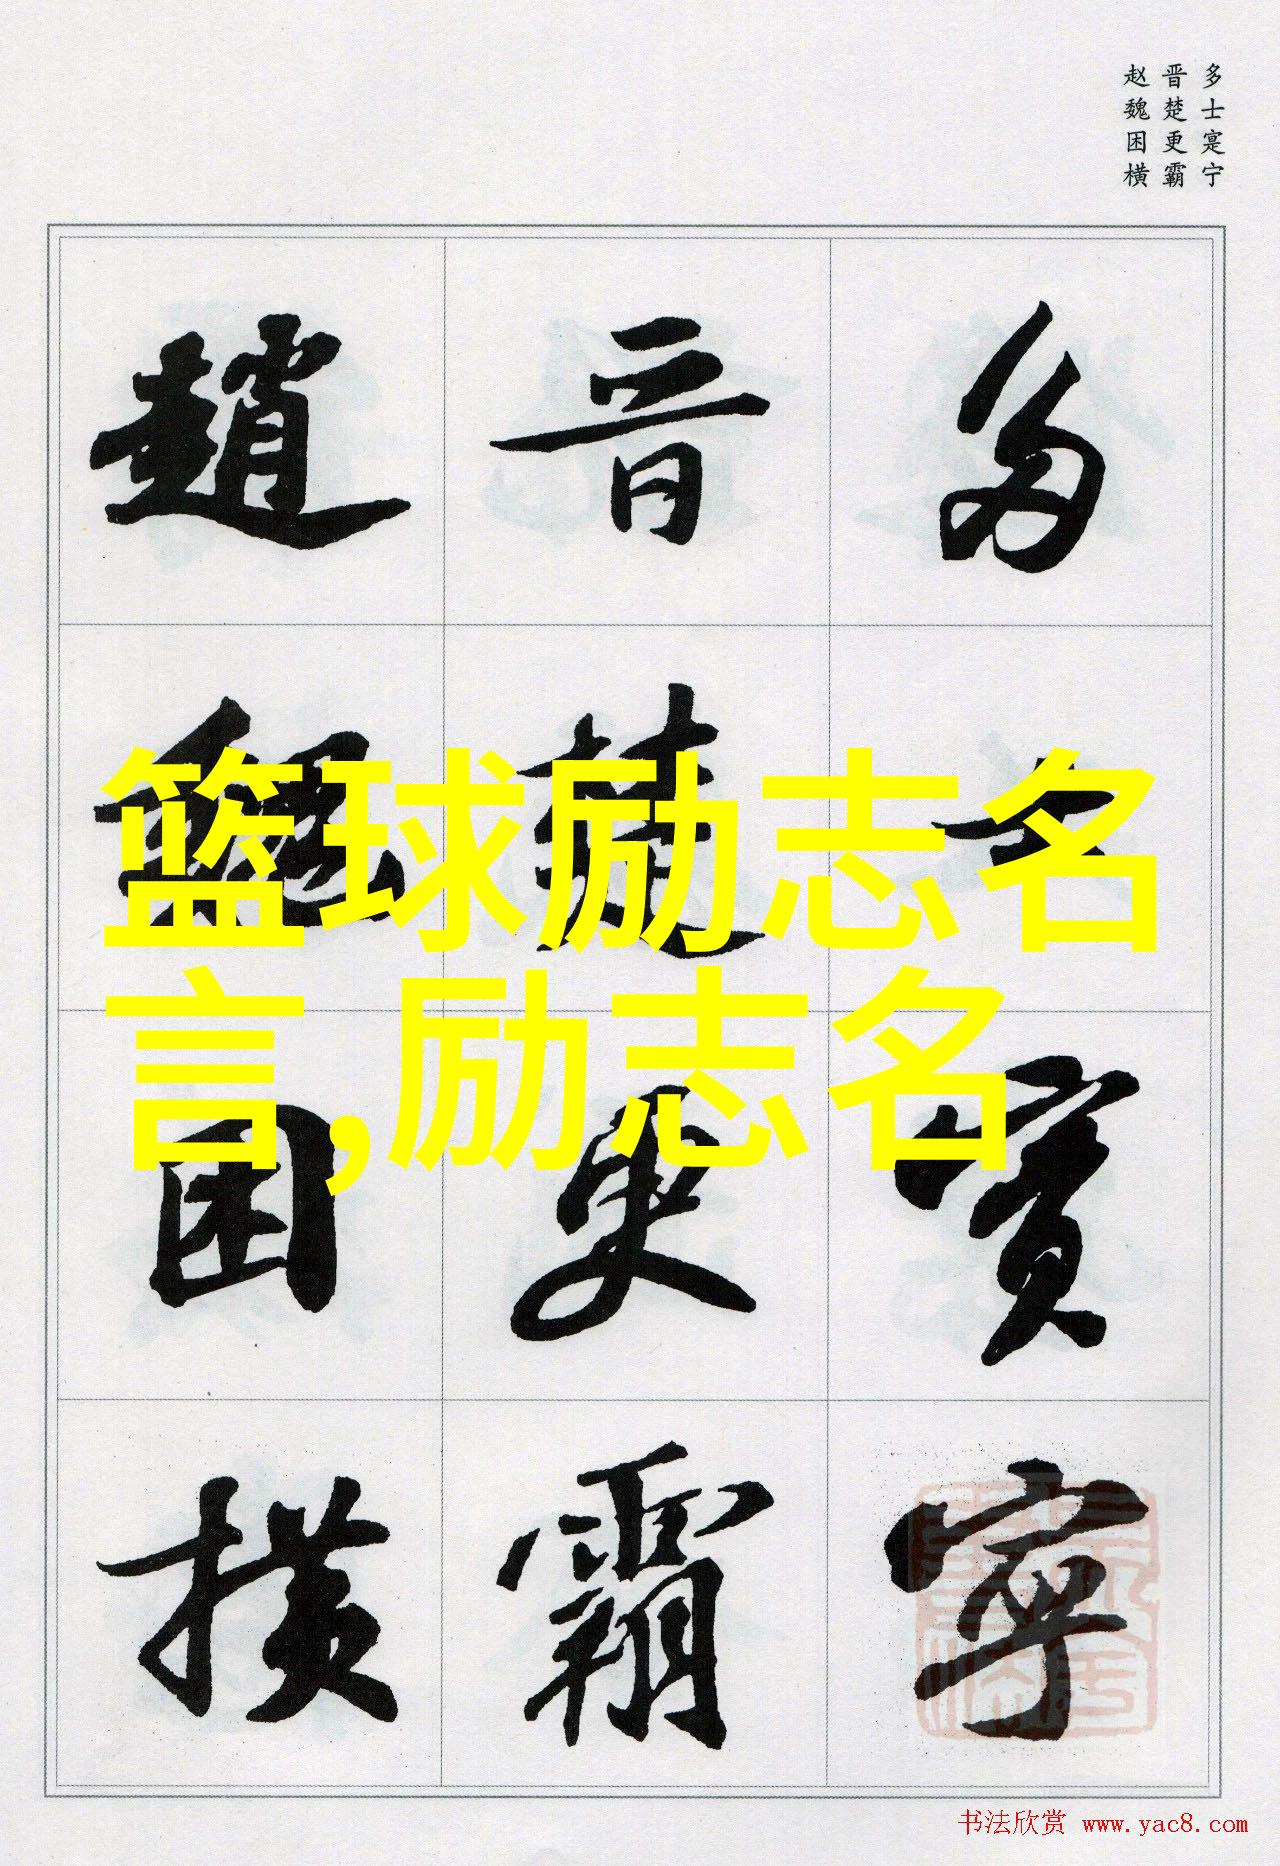 多士寔宁
晋楚更霸
赵魏困横
多士寔寧
晋楚更霸
趙魏困横
篮球励志名
言,励志名
书法欣赏 www.yac8.com